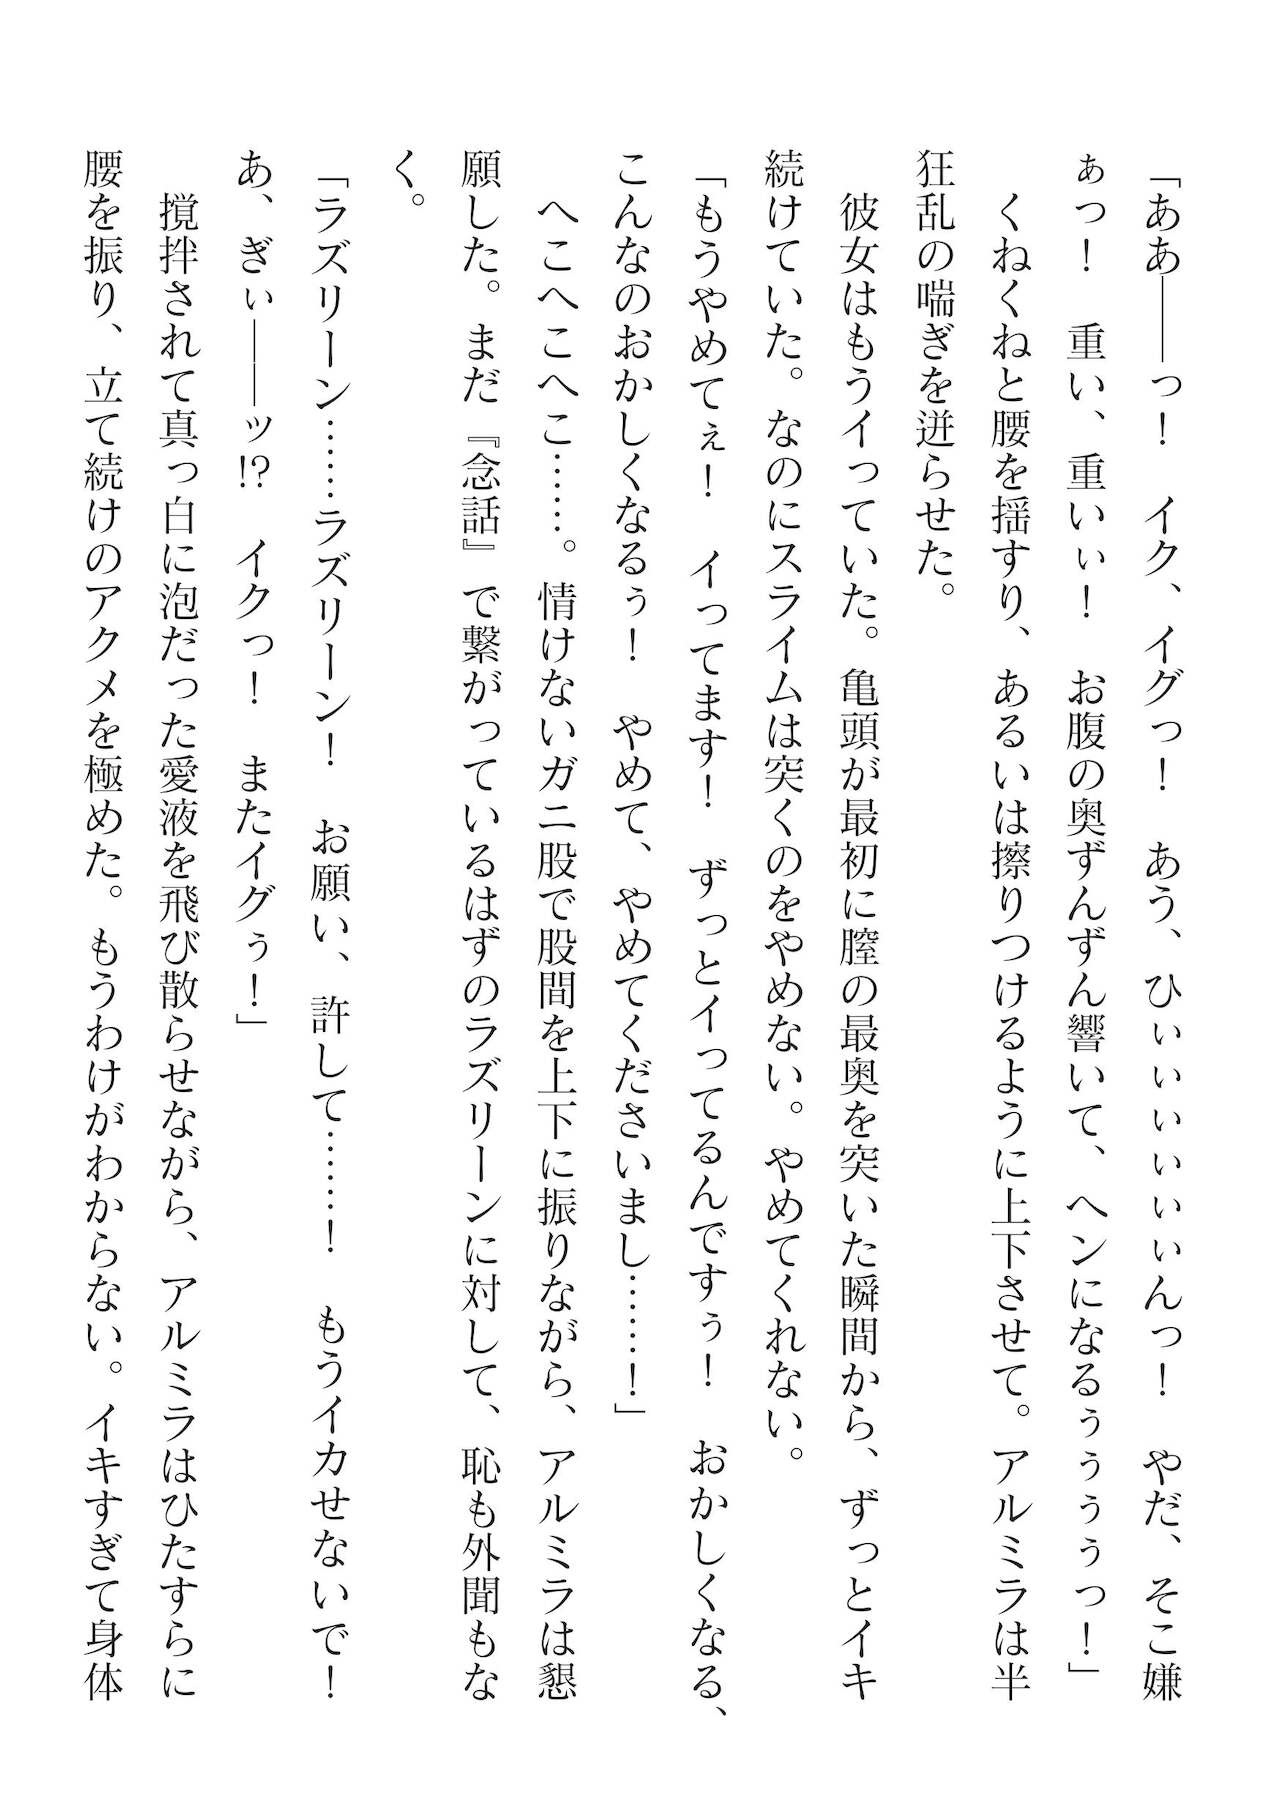 「ああ――っ！　イク、イグっ！　あう、ひぃぃぃぃぃんっ！　やだ、そこ嫌
ぁっ！　重い、重いぃ！　お腹の奥ずんずん響いて、ヘンになるぅぅぅぅっ！」
　くねくねと腰を揺すり、あるいは擦りつけるように上下させて。アルミラは半
狂乱の喘ぎを迸らせた。
　彼女はもうイっていた。亀頭が最初に膣の最奥を突いた瞬間から、ずっとイキ
続けていた。なのにスライムは突くのをやめない。やめてくれない。
「もうやめてぇ！　イってます！　ずっとイってるんですぅ！　おかしくなる、
こんなのおかしくなるぅ！　やめて、やめてくださいまし……！」
　へこへこへこ……。情けないガニ股で股間を上下に振りながら、アルミラは懇
願した。まだ『念話』で繋がっているはずのラズリーンに対して、恥も外聞もな
く。
「ラズリーン……ラズリーン！　お願い、許して……！　もうイカせないで！
あ、ぎぃ――ッ!?　イクっ！　またイグぅ！」
　撹拌されて真っ白に泡だった愛液を飛び散らせながら、アルミラはひたすらに
腰を振り、立て続けのアクメを極めた。もうわけがわからない。イキすぎて身体